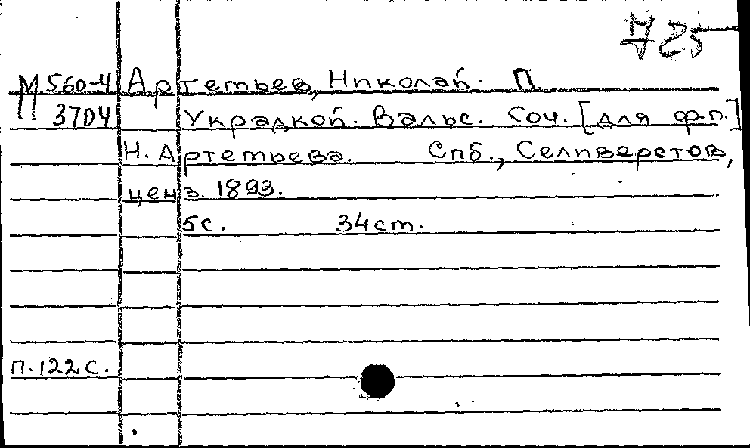 725
М 560-4 Артемьев, Николай. П
3704 Украдкой. Вальс. Соч. [для ф.п.]
Н. Артемьева. Спб., Селиверстов,
ценз. 1893.
5с. 34см.
п.122с.